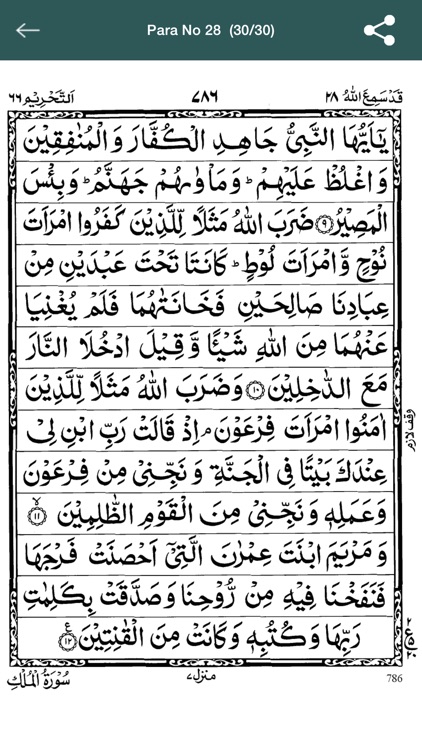 Para No 28 (30/30)
قَدۡسَمِعَ اللهُ ۲۸ ۷۸۶ اَلتَّحۡرِيۡم ۶۶
يٰۤاَيُّهَا النَّبِىُّ جَاهِدِ الۡكُفَّارَ وَالۡمُنٰفِقِيۡنَ
وَاغۡلُظۡ عَلَيۡهِمۡ‌ؕ وَمَاۡوٰٮهُمۡ جَهَنَّمُ‌ؕ وَبِئۡسَ
الۡمَصِيۡرُ ۹ ضَرَبَ اللهُ مَثَلًا لِّلَّذِيۡنَ كَفَرُوا امۡرَاَتَ
نُوۡحٍ وَّامۡرَاَتَ لُوۡطٍ‌ؕ كَانَتَا تَحۡتَ عَبۡدَيۡنِ مِنۡ
عِبَادِنَا صَالِحَيۡنِ فَخَانَتٰهُمَا فَلَمۡ يُغۡنِيَا
عَنۡهُمَا مِنَ اللهِ شَيۡـًٔا وَّقِيۡلَ ادۡخُلَا النَّارَ
مَعَ الدّٰخِلِيۡنَ ۱۰ وَضَرَبَ اللهُ مَثَلًا لِّلَّذِيۡنَ
اٰمَنُوا امۡرَاَتَ فِرۡعَوۡنَ‌ۘ اِذۡ قَالَتۡ رَبِّ ابۡنِ لِىۡ
عِنۡدَكَ بَيۡتًا فِى الۡجَنَّةِ وَنَجِّنِىۡ مِنۡ فِرۡعَوۡنَ
وَعَمَلِهٖ وَنَجِّنِىۡ مِنَ الۡقَوۡمِ الظّٰلِمِيۡنَۙ ۱۱
وَمَرۡيَمَ ابۡنَتَ عِمۡرٰنَ الَّتِىۡۤ اَحۡصَنَتۡ فَرۡجَهَا
فَنَفَخۡنَا فِيۡهِ مِنۡ رُّوۡحِنَا وَصَدَّقَتۡ بِكَلِمٰتِ
رَبِّهَا وَكُتُبِهٖ وَكَانَتۡ مِنَ الۡقٰنِتِيۡنَ ۱۲
وقف لازم
سُوۡرَةُ الۡمُلۡكِ منزل ۷ 786